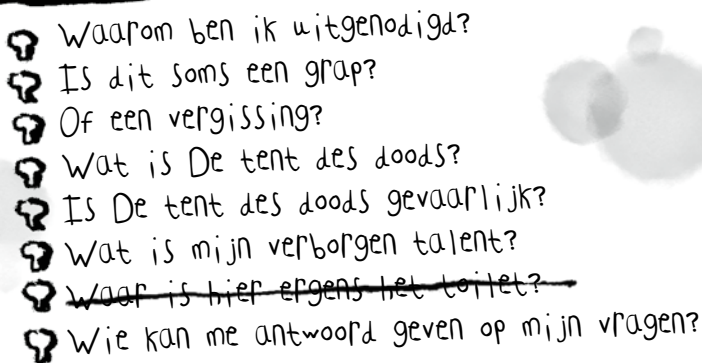 Waarom ben ik uitgenodigd?
Is dit soms een grap?
Of een vergissing?
Wat is De tent des doods?
Is De tent des doods gevaarlijk?
Wat is mijn verborgen talent?
Waar is hier ergens het toilet?
Wie kan me antwoord geven op mijn vragen?